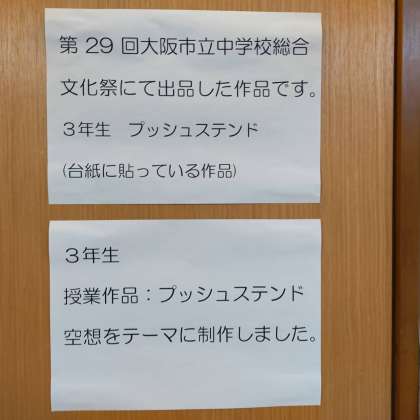 第 29 回大阪市立中学校総合
文化祭にて出品した作品です。
３年生　プッシュステンド
(台紙に貼っている作品)
３年生
授業作品：プッシュステンド
空想をテーマに制作しました。